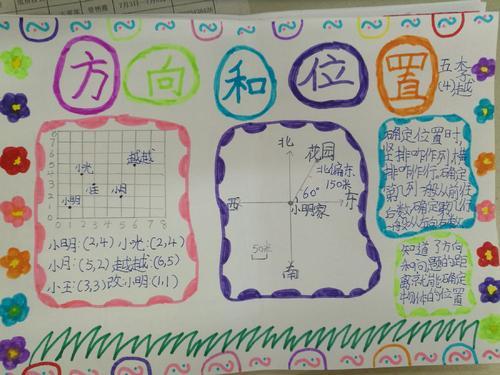 方向和位置
五(4)
李越
7
6
5
4
3
2
1
0 1 2 3 4 5 6 7 8
小光
越越
小王
小月
小明
小明:(2,4) 小光:(2,4)
小月:(5,2) 越越:(6,5)
小王:(3,3) 改小明(1,1)
北
花园
北偏东
150米
60°
西
东
小明家
50米
南
确定位置时,
竖排叫作列,横
排叫作行,确定
第几列一般从前往
知道了方向
和问题的距
离就能确定
物体的位置